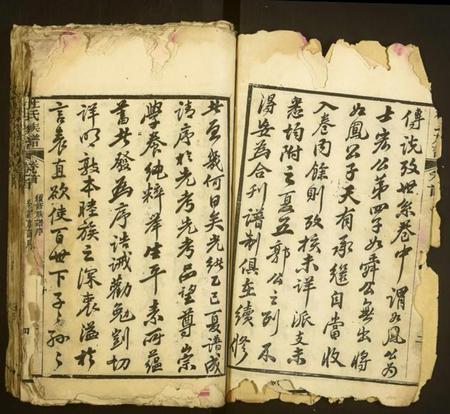 傳說攷世系卷中謂如鳳公為
士宏公第四子如舜公無出將
如鳳公子天有承繼自當收
入卷内餘則攷核未詳派支未
悉均附之夏五郭公之列不
得妄為合刋譜制俱在續修
此頁幾何日矣光緒乙巳夏譜成
請序於先考先考品望尊崇
學養純粹畢生平素所蘊
蓄者發為序誥誡勸勉剴切
詳明敦本睦族之深衷溢於
言表直欲使百世下子之孫之
氏族譜 卷首